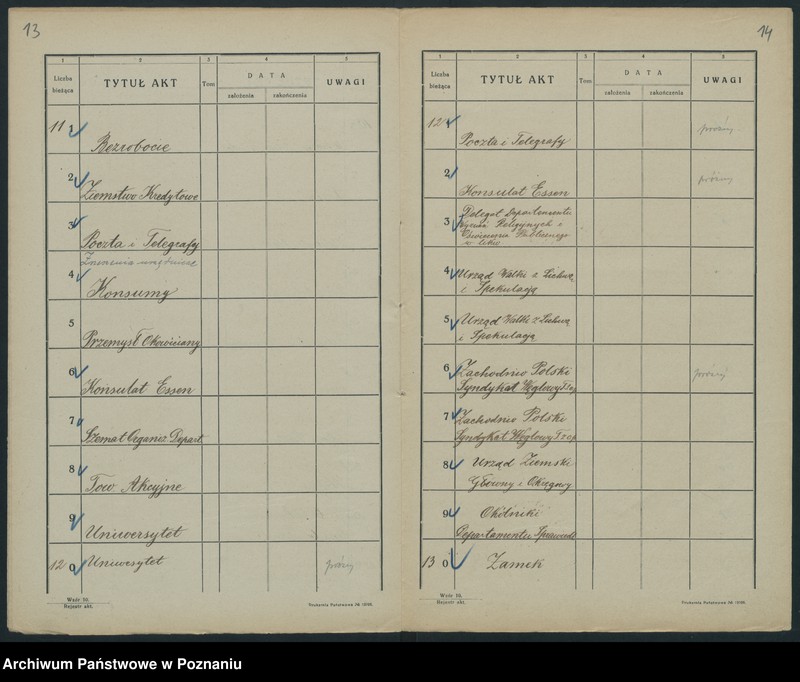 13
1 2 3 4 5
Liczba bieżąca
TYTUŁ AKT
Tom
DATA
założenia zakończenia
UWAGI
11 1 Bezrobocie
2 Ziemstwo Kredytowe
3 Poczta i Telegrafy
Zrzeszenia urzędnicze
4 Konsumy
5 Przemysł Okowiciany
6 Konsulat Essen
7 Szemat Organiz Depart.
8 Tow Akcyjne
9 Uniwersytet
12 0 Uniwersytet próżny
Wzór 10.
Rejestr akt.
14
1 2 3 4 5
Liczba bieżąca
TYTUŁ AKT
Tom
DATA
założenia zakończenia
UWAGI
12 1 Poczta i Telegrafy próżny
2 Konsulat Essen próżny
3 Delegat Departamentu
Wyznań Religijnych i
Oświecenia Publicznego
4 Urząd Walki z Lichwą
i Spekulacją
5 Urząd Walki z Lichwą
i Spekulacją
6 Zachodnio Polski próżny
Syndykat Węglowy Tzop
7 Zachodnio Polski
Syndykat Węglowy Tzop
8 Urząd Ziemski
Główny i Okręgowy
9 Okólniki
Departamentu Sprawiedl
13 0 Zamek
Wzór 10.
Rejestr akt.
Archiwum Państwowe w Poznaniu